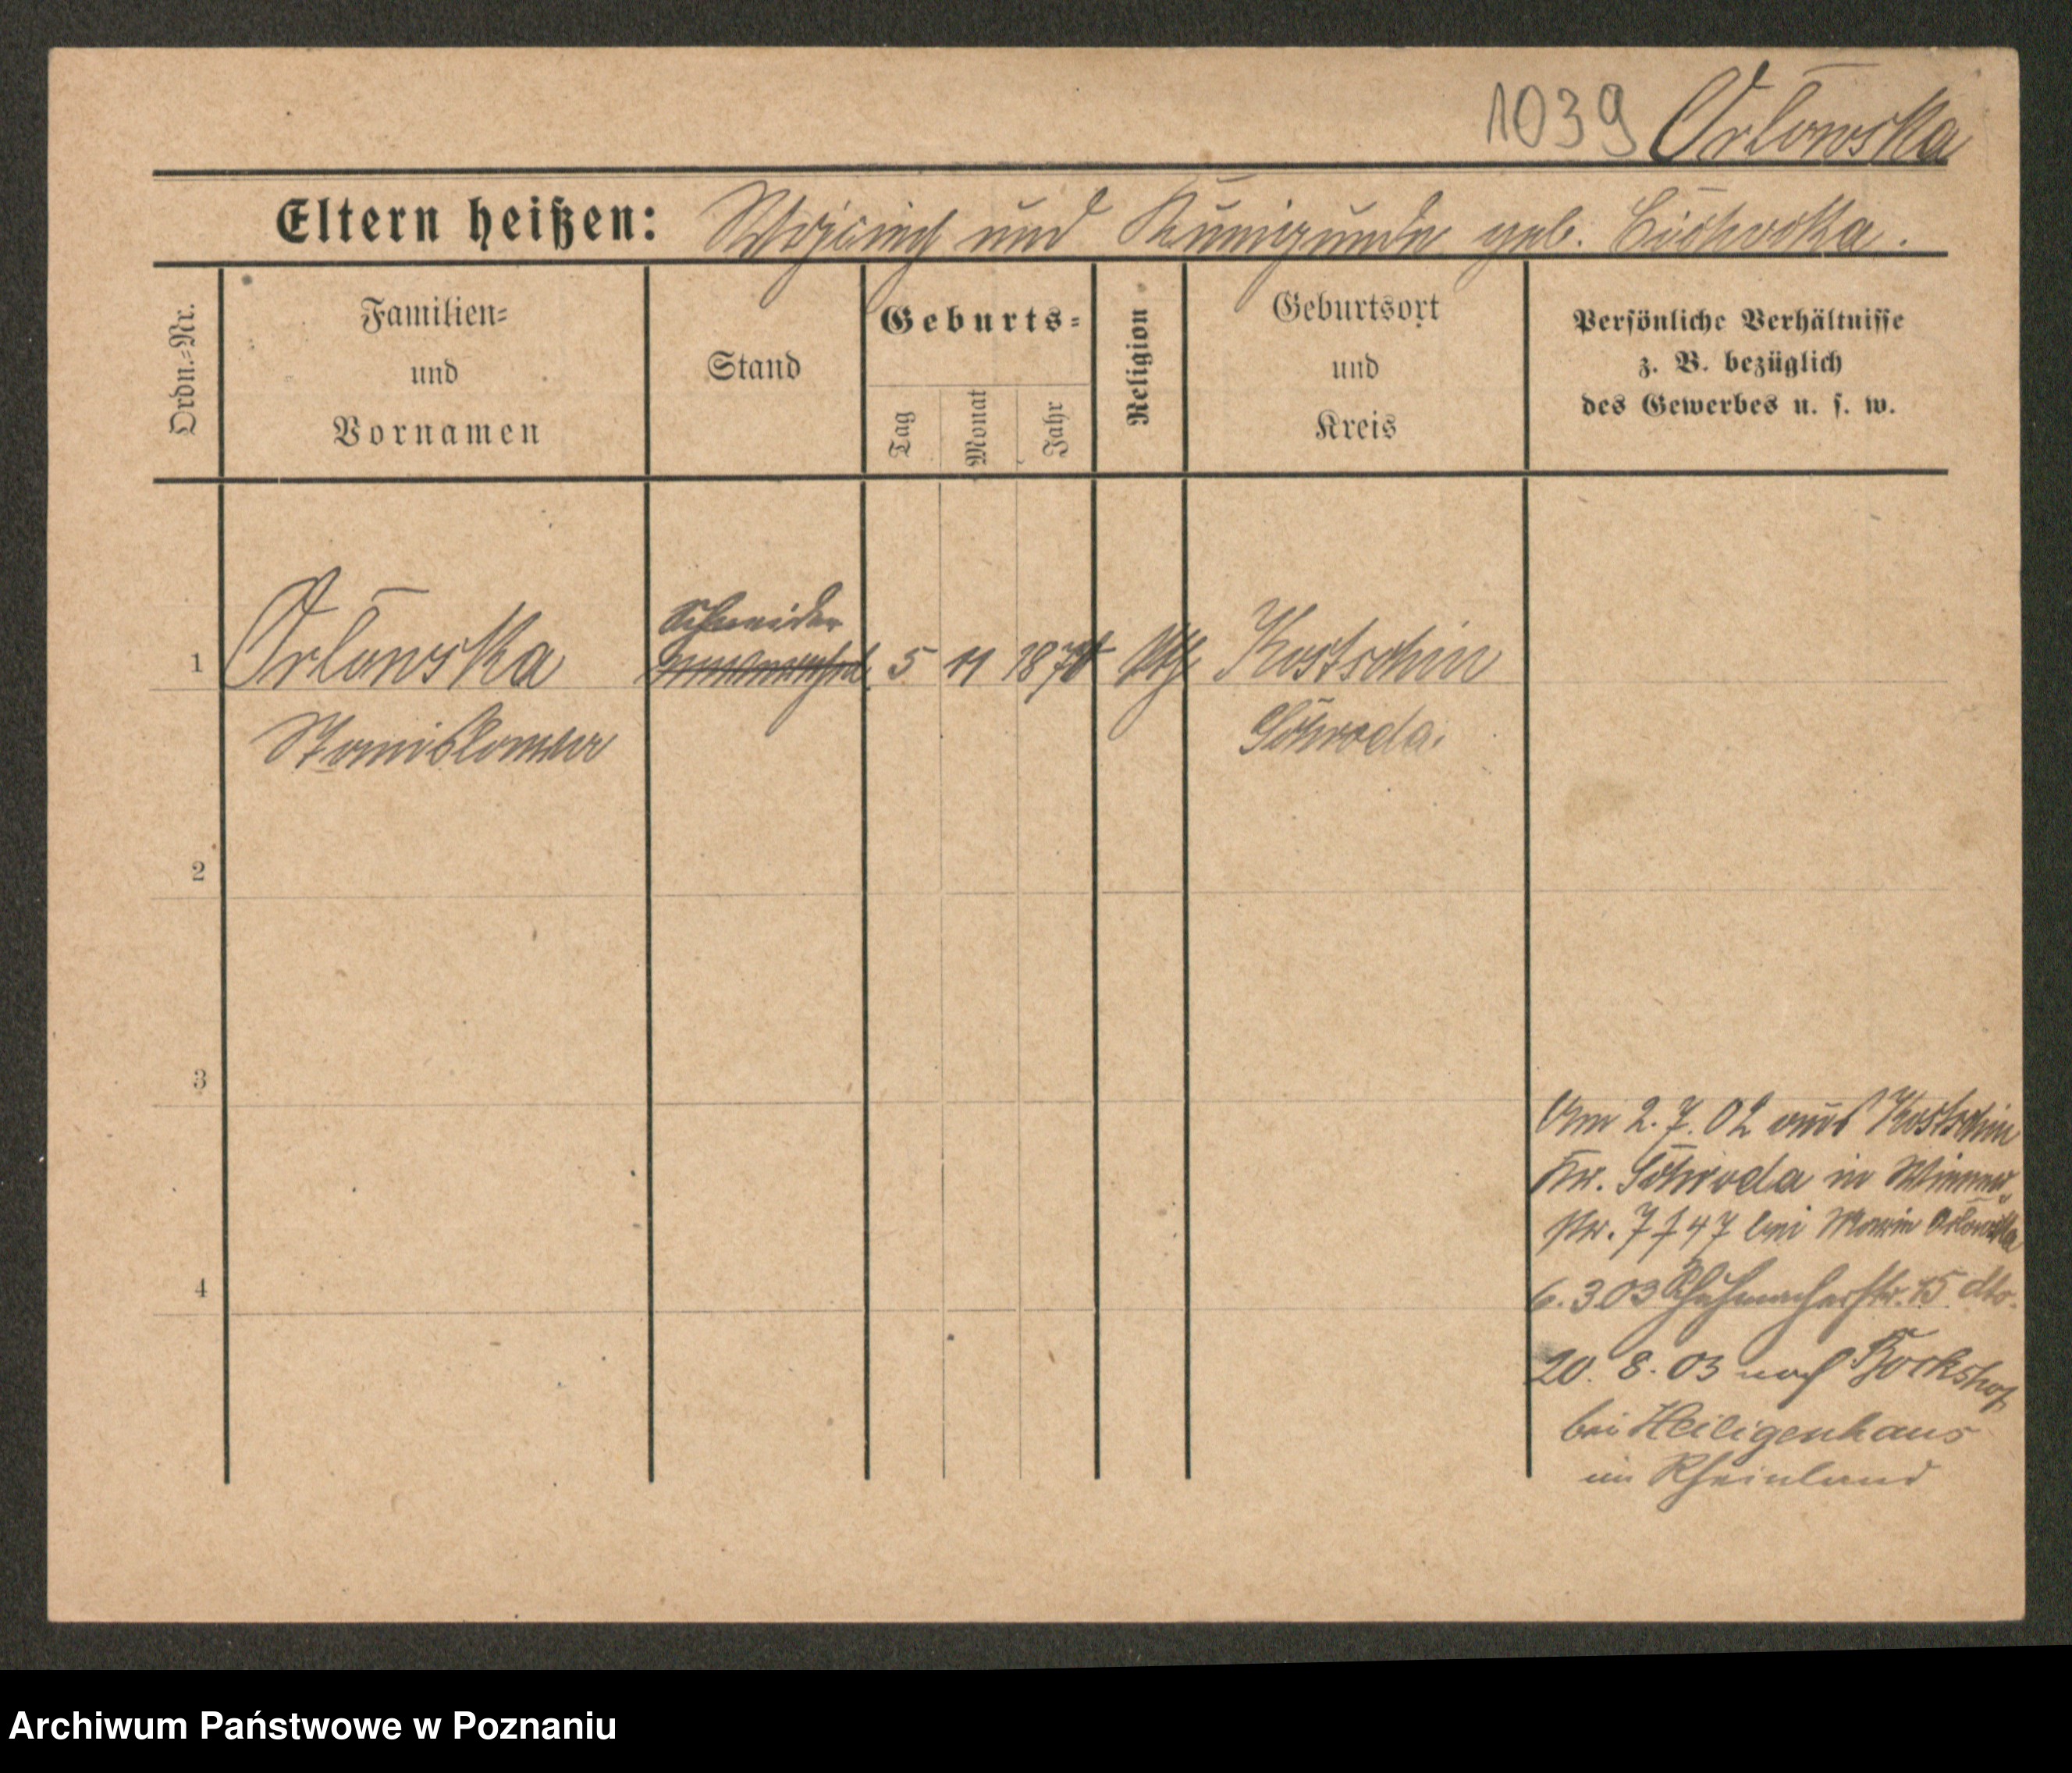 1039 Orlowska
Eltern heißen: und Kunigunde geb.
Ordn.-Nr.
Familien-
und
Vornamen
Stand
Geburts-
Tag
Monat
Jahr
Religion
Geburtsort
und
Kreis
Persönliche Verhältnisse
z. B. bezüglich
des Gewerbes u. s. w.
Schneider
1 Orlowska 5 11 Kostschin
Stanislawa Schroda.
2
3
Am 2. 7. 02 aus Kostschin
Kr. Schroda in
bei Maria Orlowska
4
6. 3 03 Schuhmacherstr. 15 dto.
20. 8. 03 nach
bei Heiligenhaus
im Rheinland
Archiwum Państwowe w Poznaniu